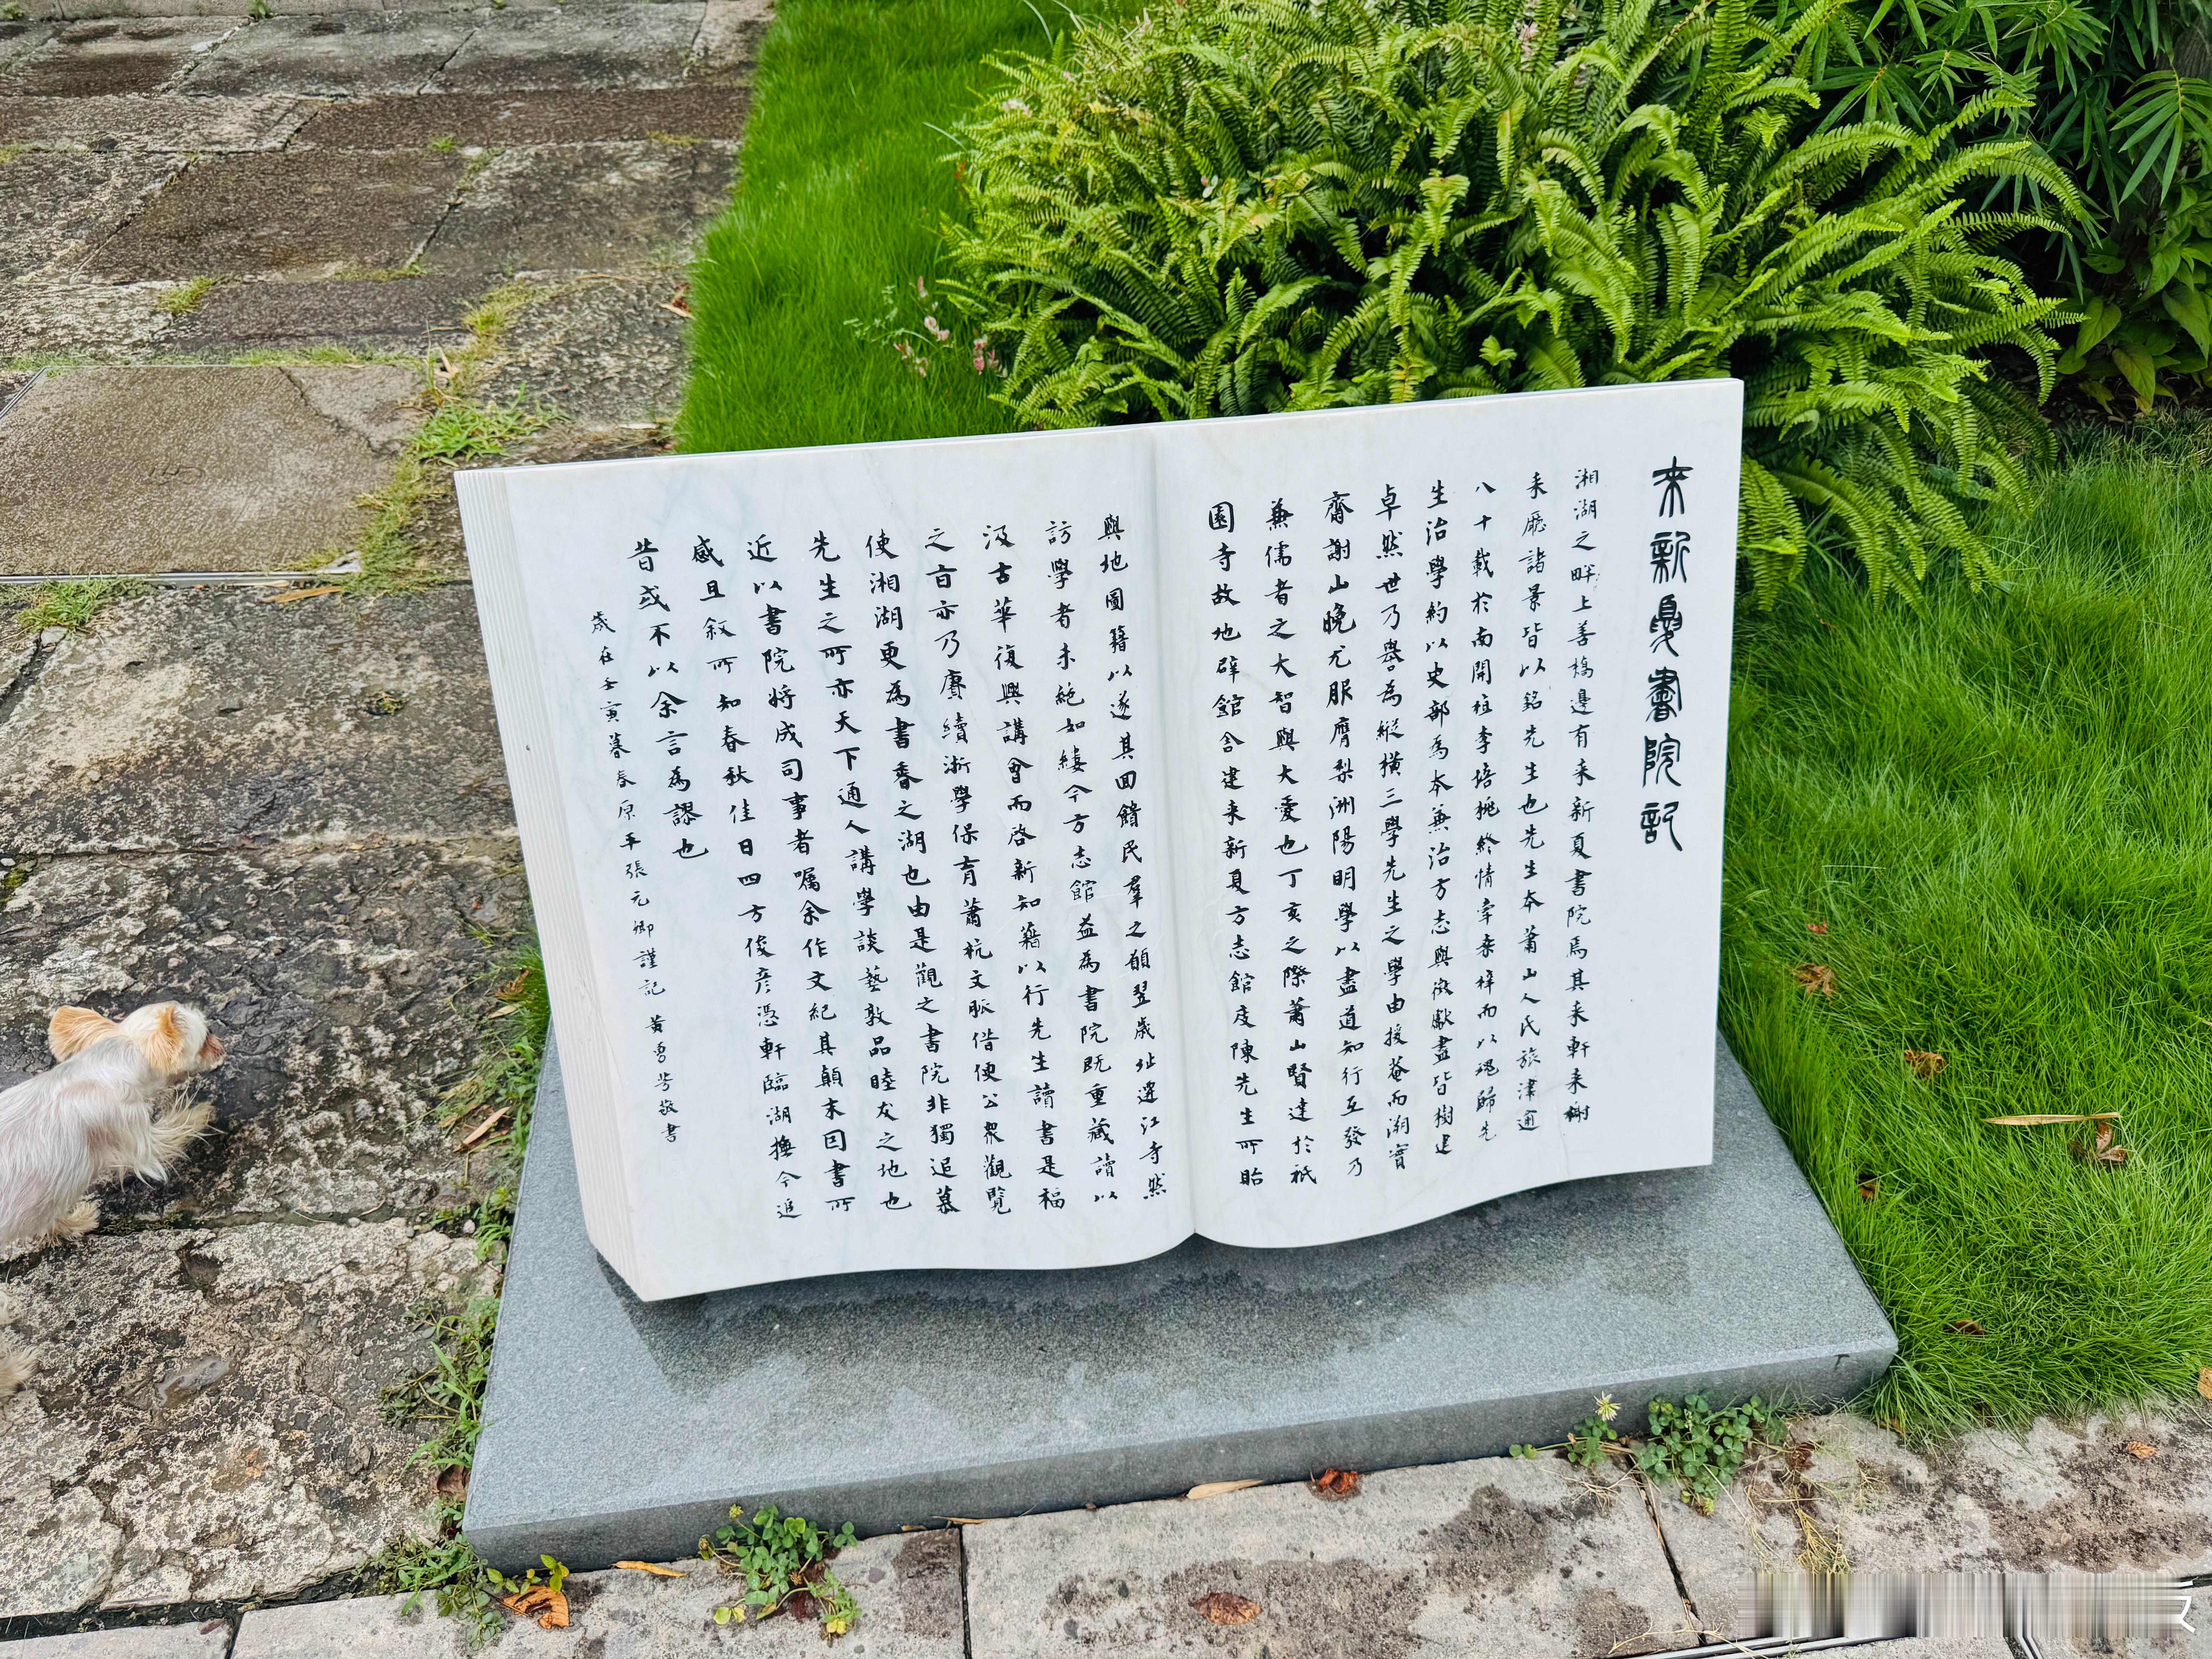 來新夏書院記
湘湖之畔上善橋邊有来新夏書院焉其来軒来榭
来廳諸景皆以銘先生也先生本蕭山人氏旅津逾
八十載於南開桂李培桃終情牽桑梓而以魂歸先
生治學約以史部為本兼治方志與文獻盡皆樹建
卓然世乃譽為縱橫三學先生之學由援菴而溯實
齋謝山晚尤服膺梨洲陽明學以盡道知行互發乃
兼儒者之大智與大愛也丁亥之際蕭山賢達於祇
園寺故地辟館舍建来新夏方志館庋陳先生所貽
輿地圖籍以遂其回饋民羣之願翌歲址遷江寺然
訪學者未絶如縷今方志館益為書院既重藏讀以
汲古華復興講會而啓新知藉以行先生讀書是福
之旨亦乃賡續浙學保育蕭杭文脈借使公衆觀覽
使湘湖更為書香之湖也由是觀之書院非獨追慕
先生之所亦天下通人講學談藝敦品睦友之地也
近以書院将成司事者囑余作文紀其顛末因書所
感且叙所知春秋佳日四方俊彦憑軒臨湖撫今追
昔或不以余言為謬也
歲在壬寅暮春原平張元卿謹記 黄雪芳敬書